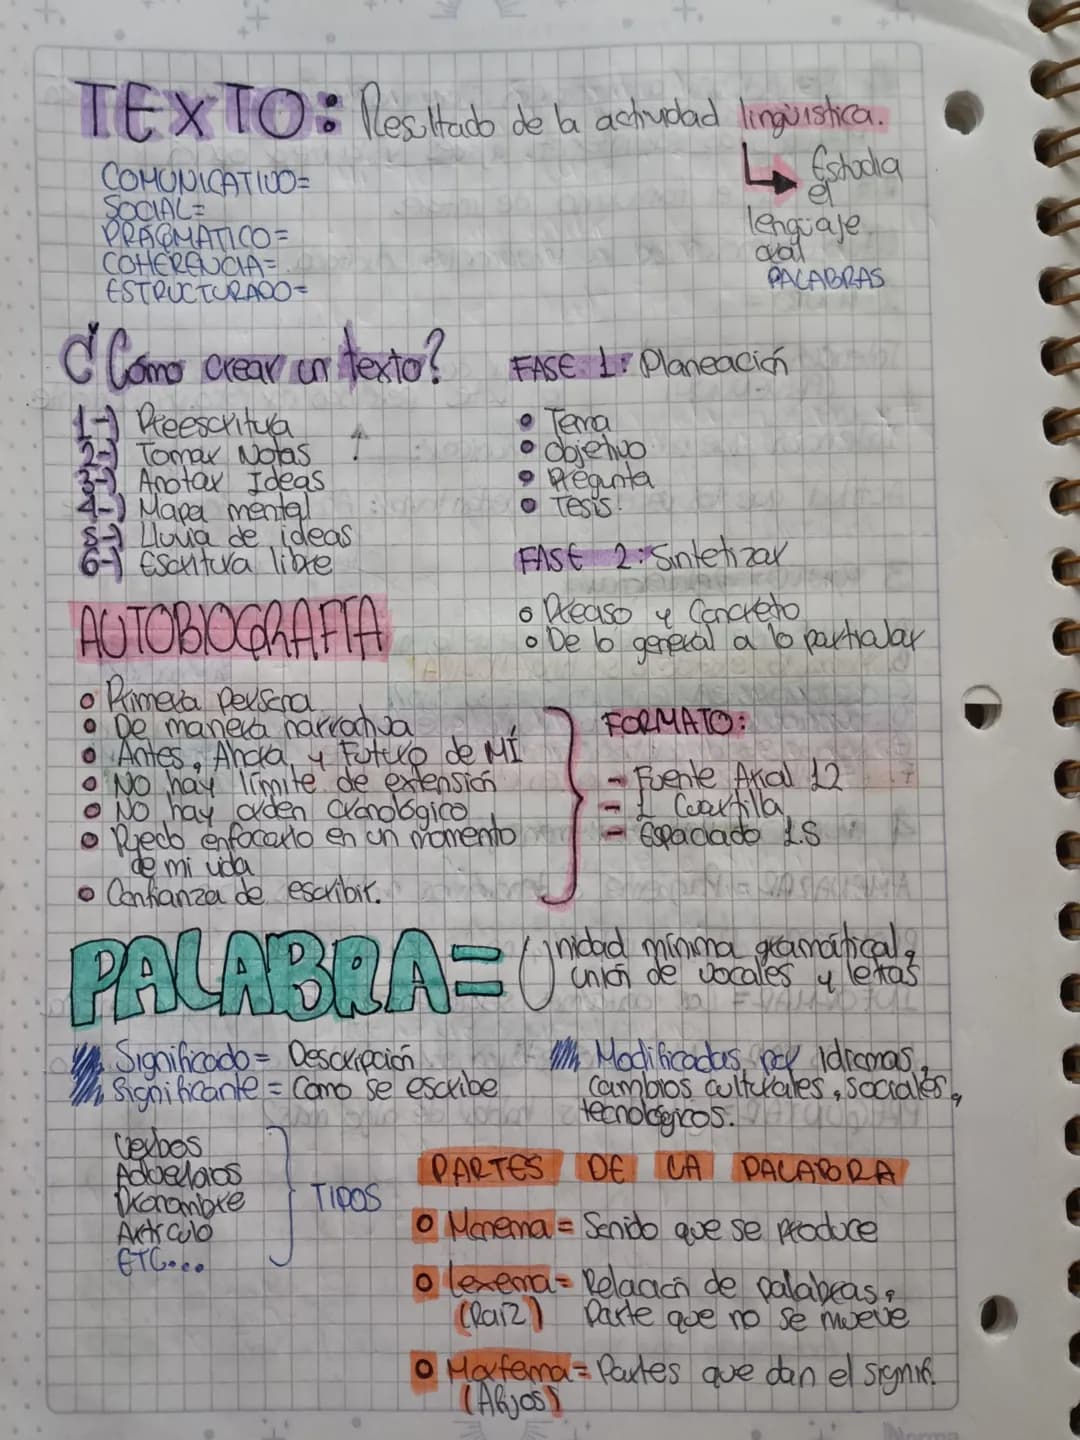 TEXTO: Resultado de la actividad lingüistica.
Estudia
el
lenguaje
oral
PALABRAS
COMUNICATIVO=
SOCIAL=
PRAGMATICO=
COHERENCIA=
ESTRUCTURADO=
¿Cómo crear un texto?
1-) Preescritura
2-) Tomar Notas
3-) Anotar Ideas
4-) Mapa mental
5-) Lluvia de ideas
6-) Escritura libre
FASE 1: Planeación
• Tema
• Objetivo
• Pregunta
• Tesis.
FASE 2: Sintetizar
• Preciso y Concreto
• De lo general a lo particular
AUTOBIOGRAFIA
• Primera persona
• De manera narrativa
• Antes, Ahora, y Futuro de MÍ
• NO hay límite de extensión
• NO hay orden cronológico
• Puedo enfocarlo en un momento
de mi vida
• Confianza de escribir.
FORMATO:
- Fuente Arial 12
- 1 Cuartilla
- Espaciado 1.5
PALABRA= Unidad mínima gramatical,
unión de vocales y letras
Significado= Descripción
Significante= Como se escribe
Modificadas por idiomas,
cambios culturales, sociales,
tecnológicos.
Verbos
Adverbios
Pronombre
Artículo
ETC...
TIPOS
PARTES DE LA PALABRA
• Monema= Sonido que se produce
• Lexema= Relación de palabras,
(Raíz) Parte que no se mueve
• Morfema= Partes que dan el signif.
(Afijos)
Norma